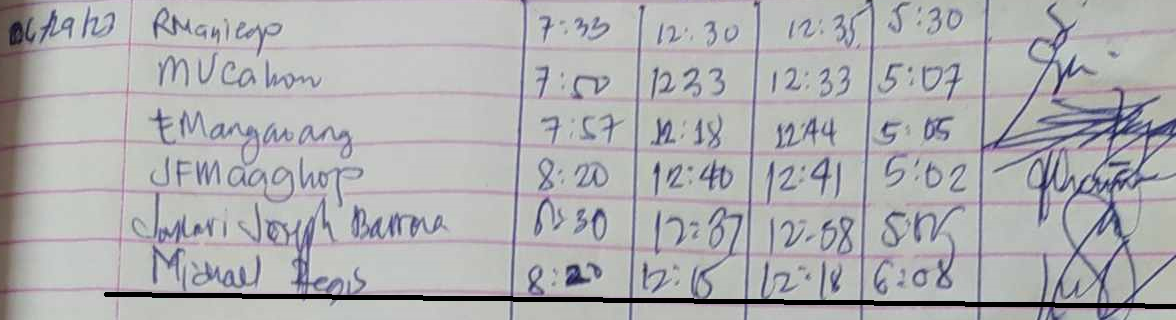 RManiego 7:33 12:30 12:35 5:30
MVCahon 7:50 1233 12:33 5:07
EMangawang 7:57 12:18 1244 5:05
JFMagghop 8:20 12:40 12:41 5:02
Joseph Barrona 8:30 12:37 12:58
Michael Regis 8:20 12:15 12:18 6:08